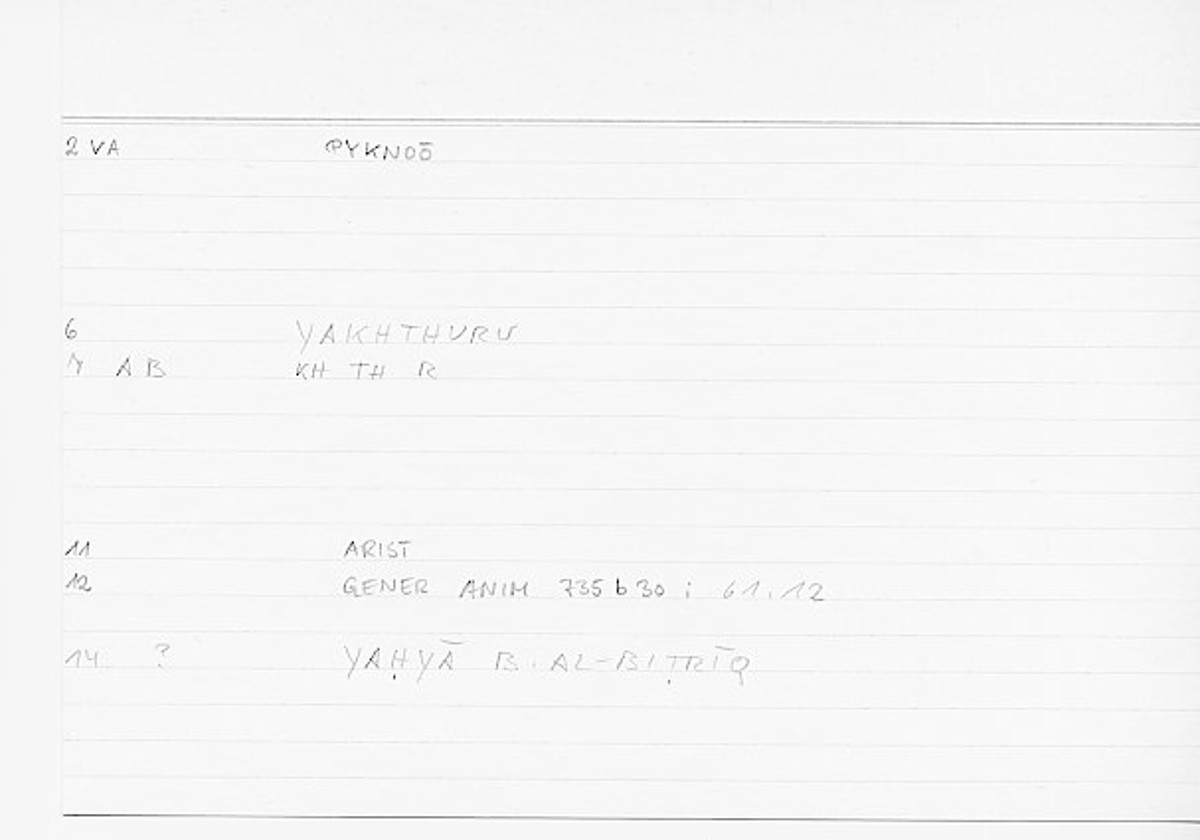 2 VA PYKNOŌ
6 YAKHTHURU
7 AB KH TH R
11 ARIST
12 GENER ANIM 735 b 30 ; 61.12
14 ? YAḤYĀ B. AL-BIṬRĪQ